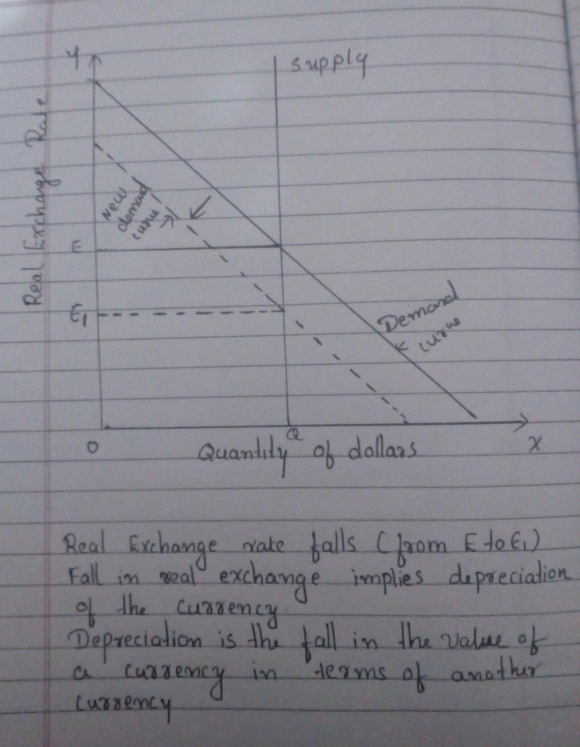 Y
supply
Real Exchange Rate
New
demand
curve
E
E1
Demand
curve
O
Q
Quantity of dollars
X
Real Exchange rate falls (from E to E1)
Fall in real exchange implies depreciation
of the currency.
Depreciation is the fall in the value of
a currency in terms of another
currency